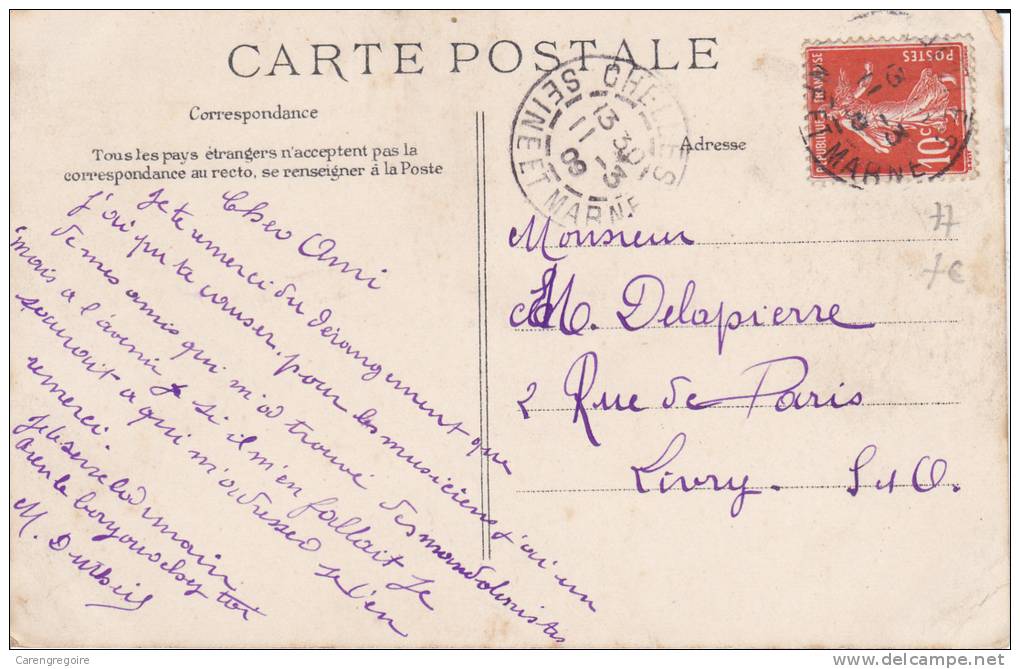 CARTE POSTALE
Correspondance
Tous les pays étrangers n'acceptent pas la
correspondance au recto, se renseigner à la Poste
Cher Ami
Je te remerci du dérangement que
j'ai pu te causer. pour les musiciens j'ai un
de mes amis qui m'a trouvé des mandolinistes
mais a l'avenir si il m'en fallait je
saurait a qui m'adresser je t'en
remerci.
Je te serre la main
bonjour chez toi
M.
CHELLES
SEINE ET MARNE
13 30
11 - 8
13
Adresse
Monsieur
M. Delapierre
2 Rue de Paris
Livry. S et O.
POSTES
REPUBLIQUE FRANÇAISE
10c
MARNE
77
7€
Carengregoire
delcampe.net